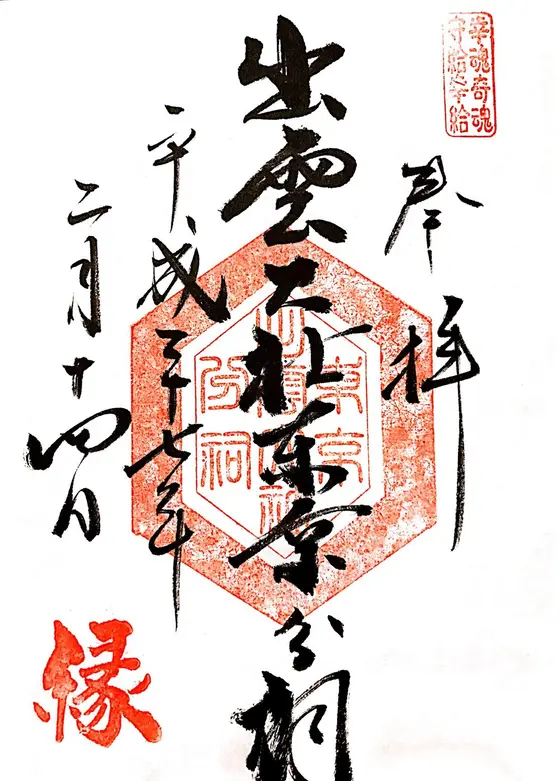 幸魂奇魂
守給幸給
奉拝
出雲大社東京分祠
東京
出雲大社
分祠
平成二十七年
二月十四日
縁